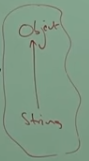 Object
String